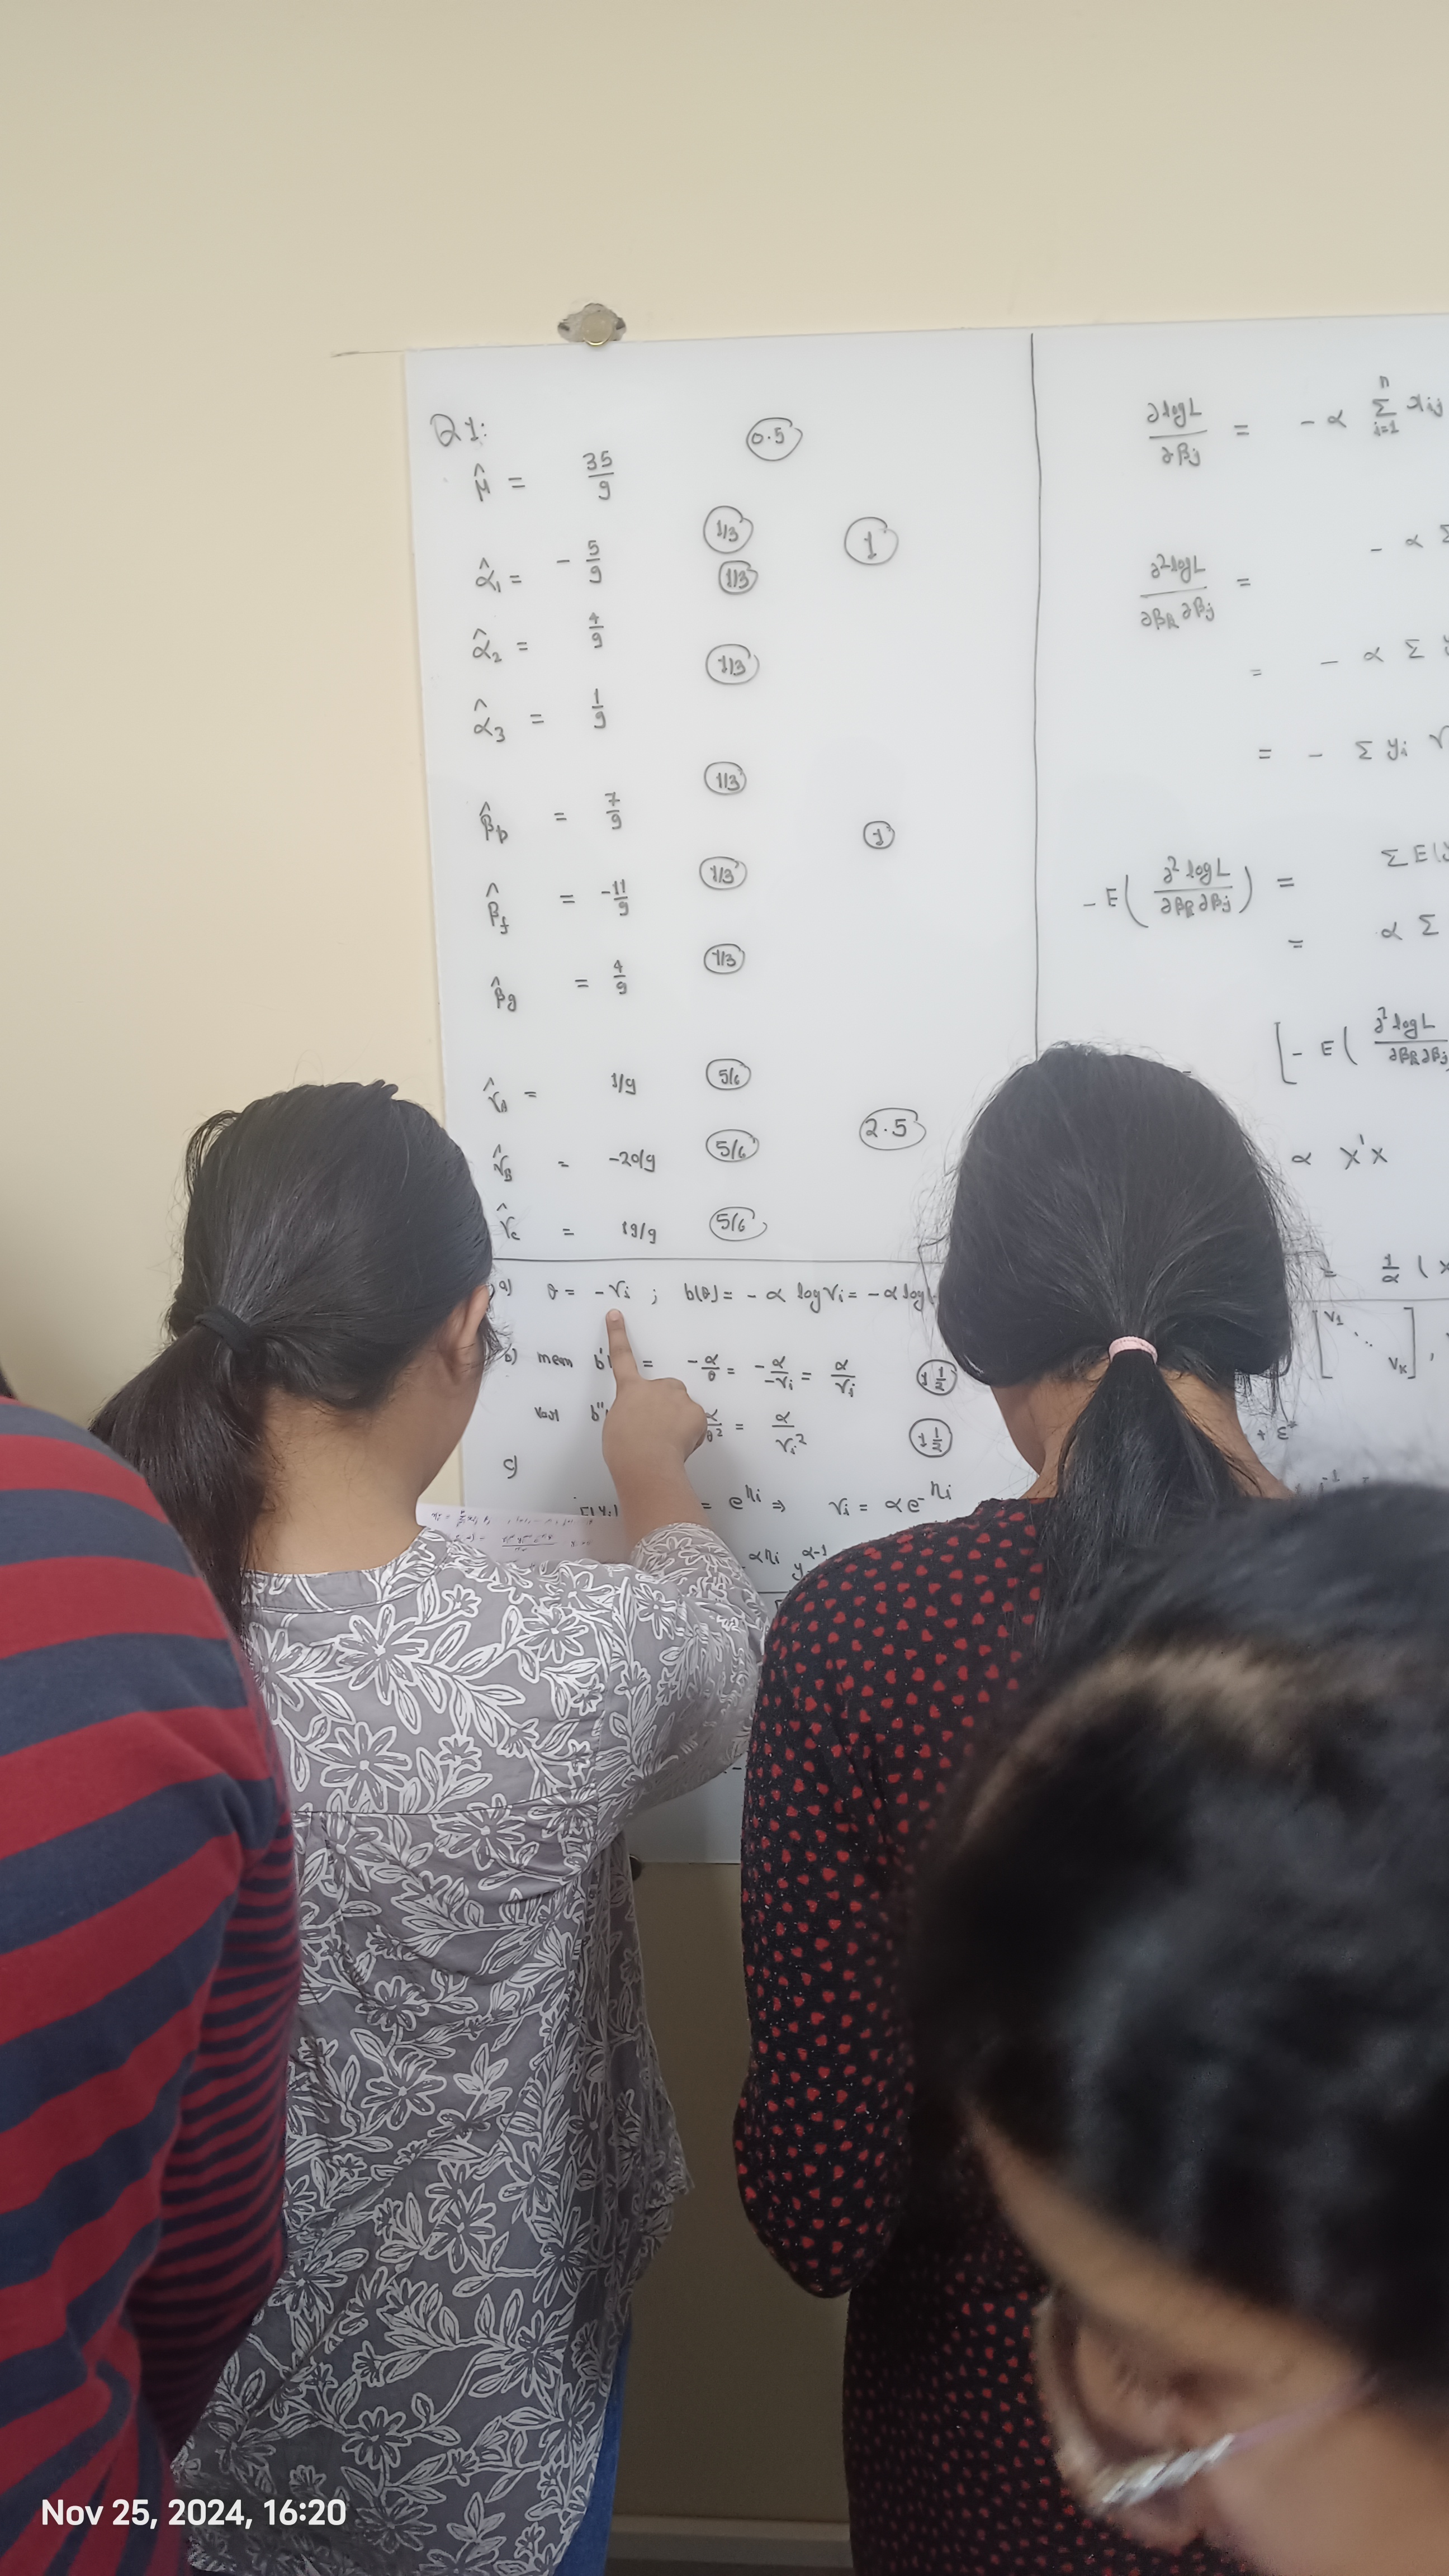 Q1:
μ̂ = 35/9 0.5
α̂₁ = - 5/9 1/3 1
1/3
α̂₂ = 4/9
1/3
α̂₃ = 1/9
1/3
β̂b = 7/9
1
β̂f = -11/9 1/3
β̂g = 4/9 1/3
γ̂A = 1/9 5/6
γ̂B = -20/9 5/6 2.5
γ̂c = 19/9 5/6
a) θ = -γi ; b(θ) = - α log γi = -α log
b) = -α/θ = -α/-γi = α/γi 1 1/2
b'' = α/γi² 1 1/2
c)
= e^ηi ⇒ γi = α e^-ηi
αηi y^α-1
∂logL/∂βj = - α Σ i=1 n xij
∂²logL/∂βk∂βj = - α Σ
= - α Σ
= - Σ yi
-E( ∂² logL/∂βk∂βj ) = Σ E(
= α Σ
[ - E( ∂² logL/∂βk∂βj
α X'X
= 1/α (
[ V1 ⋱ Vk ] ,
+ ε*
Nov 25, 2024, 16:20